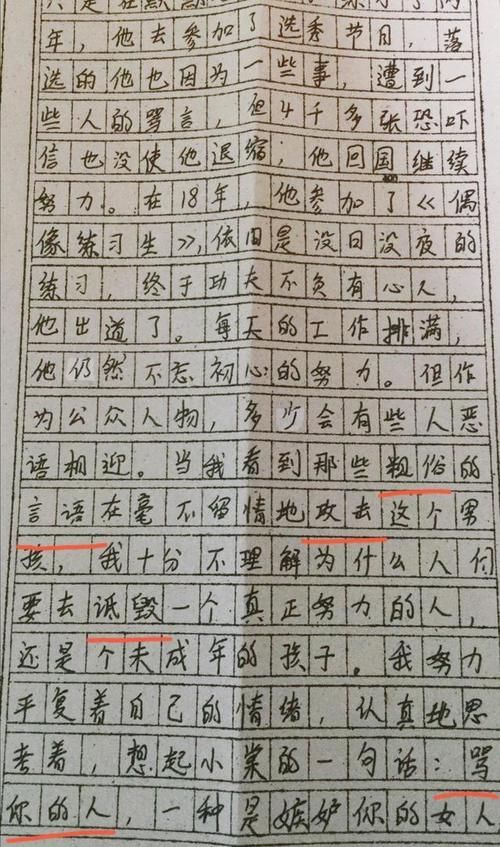 年，他去参加了选秀节目，落
选的他也因为一些事，遭到一
些人的骂言，但4千多张恐吓
信也没使他退缩，他回国继续
努力。在18年，他参加了《偶
像练习生》，依旧是没日没夜的
练习，终于功夫不负有心人，
他出道了。每天的工作排满，
他仍然不忘初心的努力。但作
为公众人物，多少会有些人恶
语相迎。当我看到那些粗俗的
言语在毫不留情地攻去这个男
孩，我十分不理解为什么人们
要去诋毁一个真正努力的人，
还是个未成年的孩子。我努力
平复着自己的情绪，认真地思
考着，想起小棠的一句话：骂
你的人，一种是嫉妒你的女人